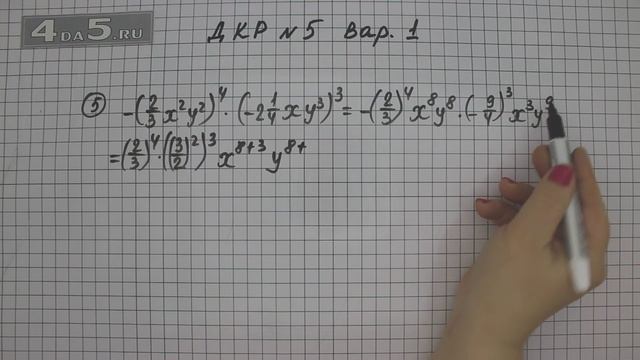 4DA5.RU
ДКР №5 Вар. 1
⑤ -(2/3 x²y²)⁴ · (-2 1/4 xy³)³ = -(2/3)⁴ x⁸y⁸ · (-9/4)³ x³y⁹
= (2/3)⁴ · ((3/2)²)³ x⁸⁺³ y⁸⁺